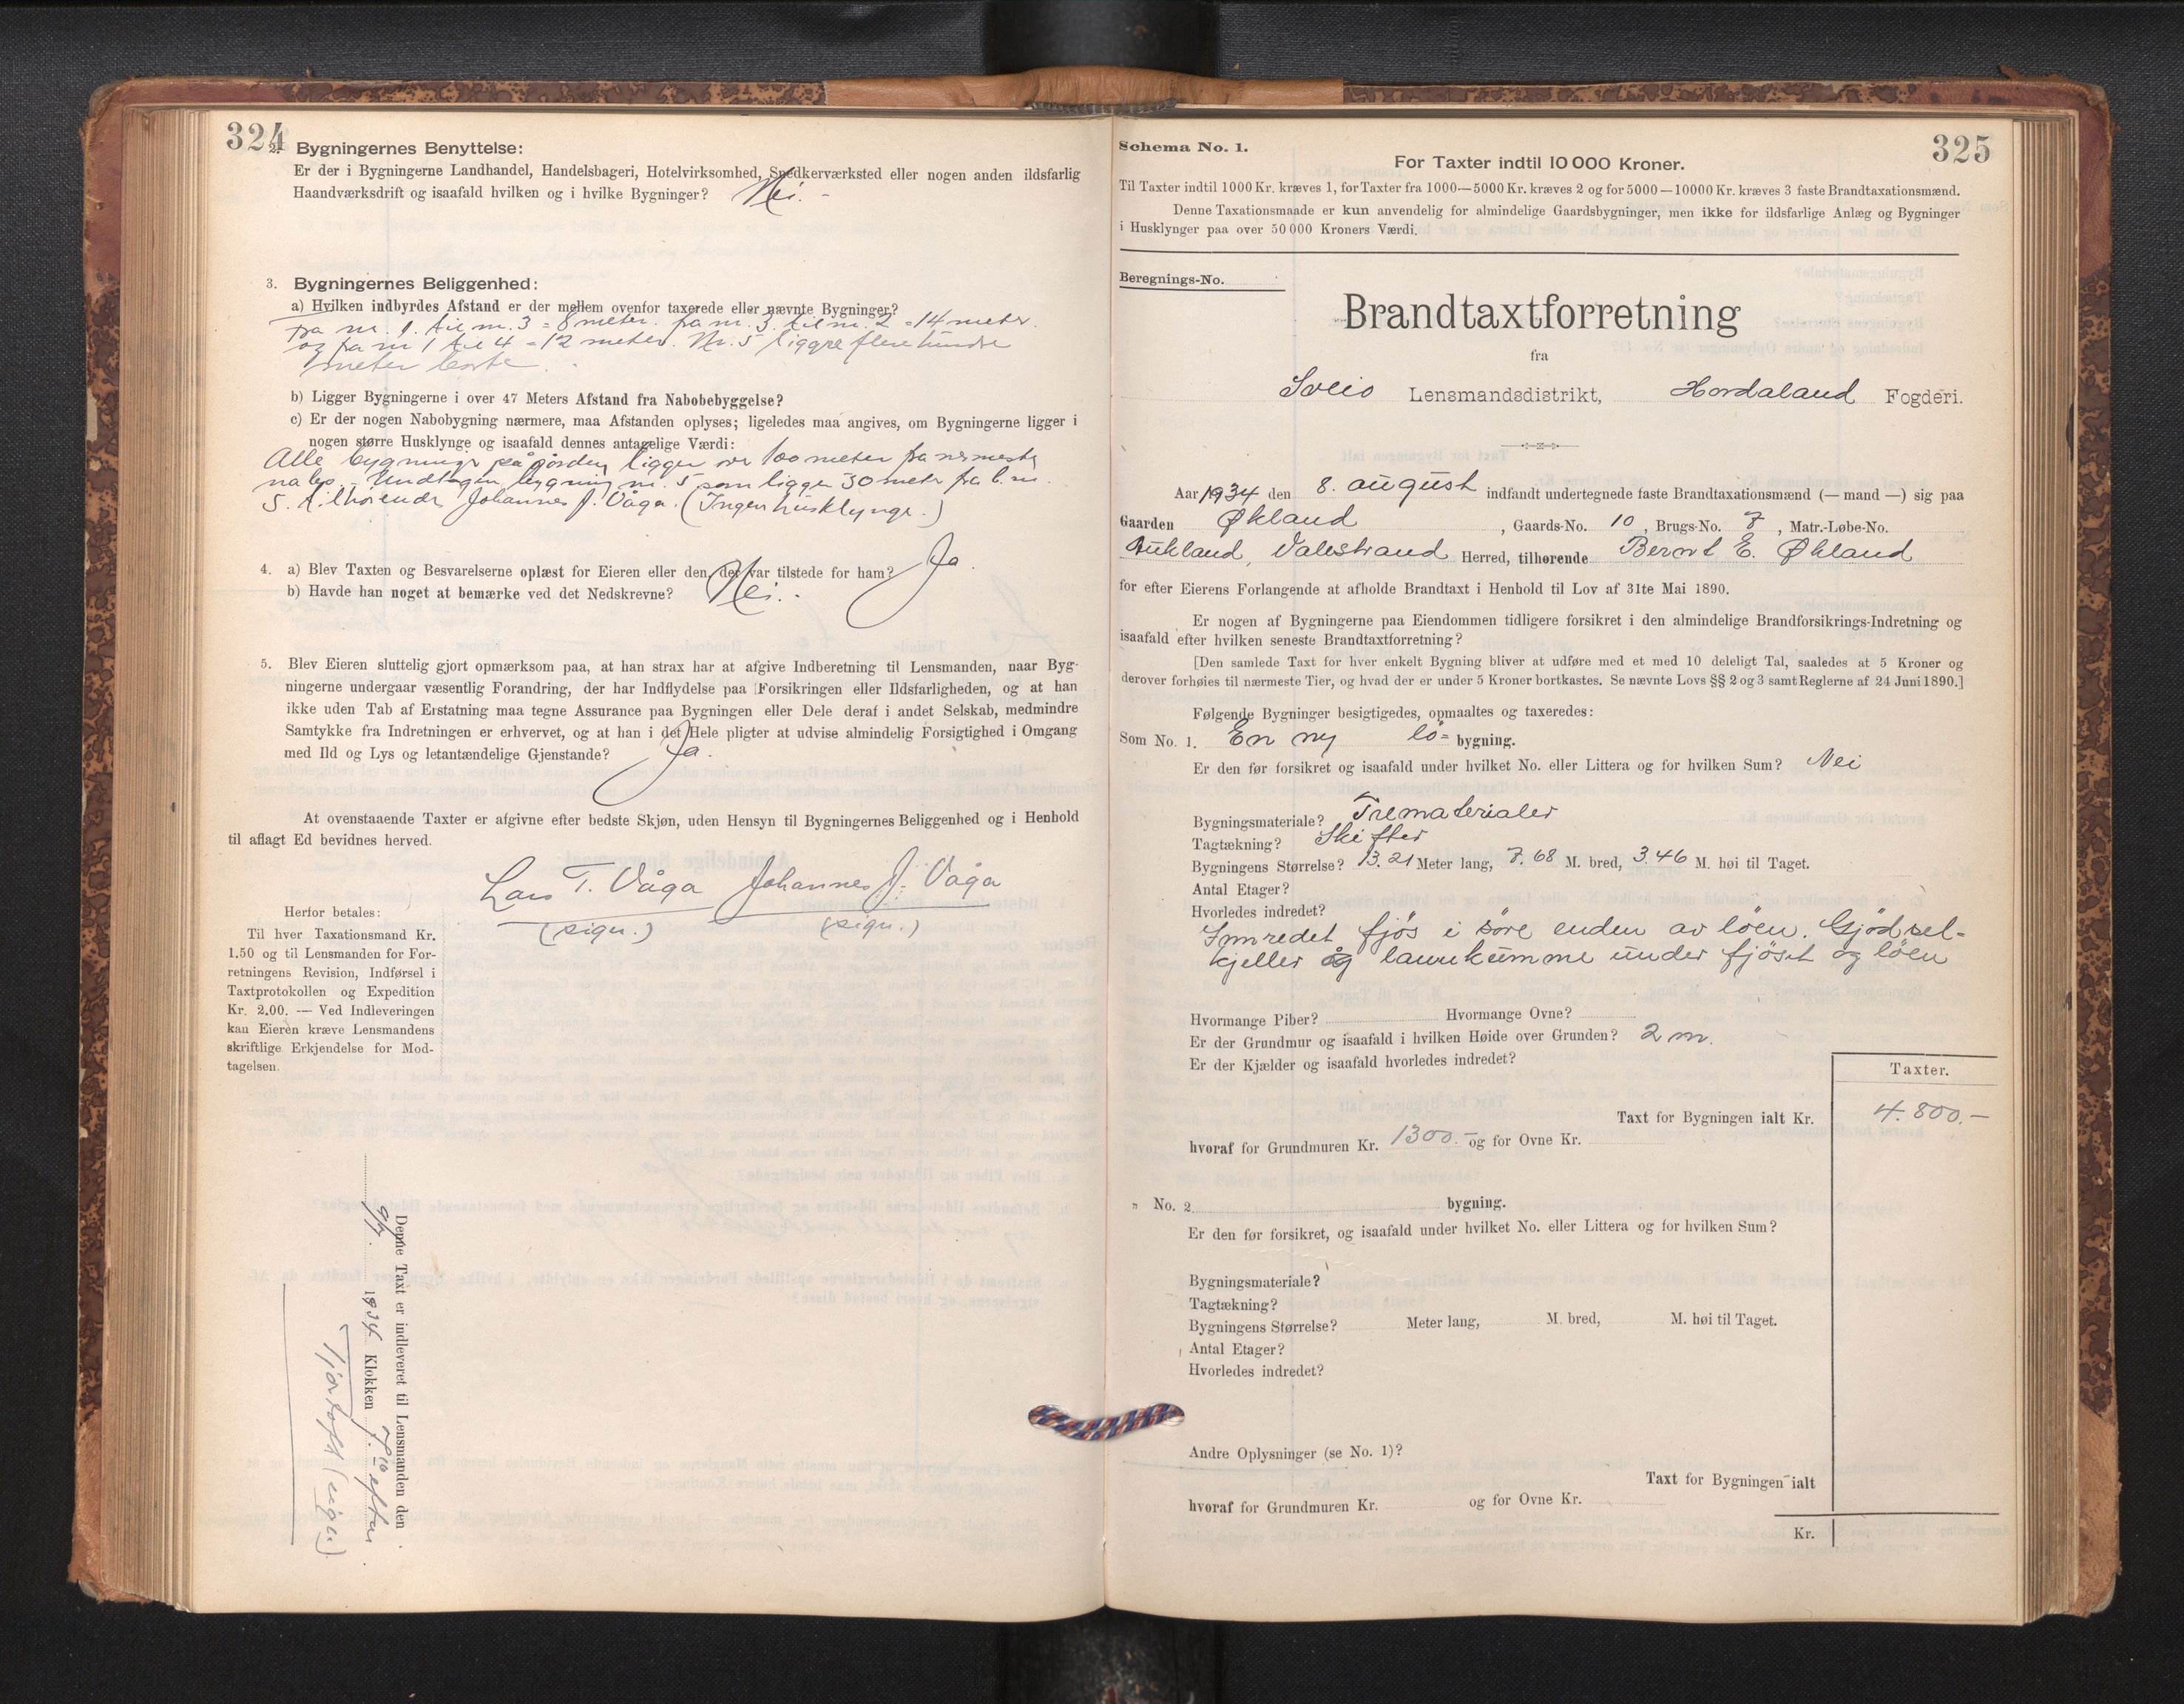 324
2. Bygningernes Benyttelse:
Er der i Bygningerne Landhandel, Handelsbageri, Hotelvirksomhed, Snedkerværksted eller nogen anden ildsfarlig
Haandværksdrift og isaafald hvilken og i hvilke Bygninger? Nei. -
3. Bygningernes Beliggenhed:
a) Hvilken indbyrdes Afstand er der mellem ovenfor taxerede eller nævnte Bygninger?
Fra nr. 1. til nr. 3 = 8 meter. fra nr. 3. til nr. 2 = 14 meter.
og fra nr 1 til 4 = 12 meter. Nr. 5 ligger flere hundre
meter borte.
b) Ligger Bygningerne i over 47 Meters Afstand fra Nabobebyggelse?
c) Er der nogen Nabobygning nærmere, maa Afstanden oplyses; ligeledes maa angives, om Bygningerne ligger i
nogen større Husklynge og isaafald dennes antagelige Værdi:
Alle bygninger på gården ligger over 100 meter fra nermeste
nabo. - Undtagen bygning nr. 5 som ligger 30 meter fra b.nr.
5. tilhørende Johannes J. Våga. (Ingen husklynge.)
4. a) Blev Taxten og Besvarelserne oplæst for Eieren eller den, der var tilstede for ham? Ja.
b) Havde han noget at bemærke ved det Nedskrevne? Nei. -
5. Blev Eieren sluttelig gjort opmærksom paa, at han strax har at afgive Indberetning til Lensmanden, naar Byg-
ningerne undergaar væsentlig Forandring, der har Indflydelse paa Forsikringen eller Ildsfarligheden, og at han
ikke uden Tab af Erstatning maa tegne Assurance paa Bygningen eller Dele deraf i andet Selskab, medmindre
Samtykke fra Indretningen er erhvervet, og at han i det Hele pligter at udvise almindelig Forsigtighed i Omgang
med Ild og Lys og letantændelige Gjenstande? Ja.
At ovenstaaende Taxter er afgivne efter bedste Skjøn, uden Hensyn til Bygningernes Beliggenhed og i Henhold
til aflagt Ed bevidnes herved.
Lars T. Våga Johannes J. Våga
(sign.) (sign.)
Herfor betales:
Til hver Taxationsmand Kr.
1.50 og til Lensmanden for For-
retningens Revision, Indførsel i
Taxtprotokollen og Expedition
Kr. 2.00. — Ved Indleveringen
kan Eieren kræve Lensmandens
skriftlige Erkjendelse for Mod-
tagelsen.
Denne Taxt er indleveret til Lensmanden den
9/7. 1934 Klokken 7.10 efter
(sign.)
325
Schema No. 1.
For Taxter indtil 10 000 Kroner.
Til Taxter indtil 1000 Kr. kræves 1, for Taxter fra 1000—5000 Kr. kræves 2 og for 5000—10000 Kr. kræves 3 faste Brandtaxationsmænd.
Denne Taxationsmaade er kun anvendelig for almindelige Gaardsbygninger, men ikke for ildsfarlige Anlæg og Bygninger
i Husklynger paa over 50 000 Kroners Værdi.
Beregnings-No.
Brandtaxtforretning
fra
Sveio Lensmandsdistrikt, Hordaland Fogderi.
Aar 1934 den 8. august indfandt undertegnede faste Brandtaxationsmænd (— mand —) sig paa
Gaarden Økland, Gaards-No. 10, Brugs-No. 7, Matr.-Løbe-No.
Aukland, Valestrand Herred, tilhørende Bernt E. Økland
for efter Eierens Forlangende at afholde Brandtaxt i Henhold til Lov af 31te Mai 1890.
Er nogen af Bygningerne paa Eiendommen tidligere forsikret i den almindelige Brandforsikrings-Indretning og
isaafald efter hvilken seneste Brandtaxtforretning?
[Den samlede Taxt for hver enkelt Bygning bliver at udføre med et med 10 deleligt Tal, saaledes at 5 Kroner og
derover forhøies til nærmeste Tier, og hvad der er under 5 Kroner bortkastes. Se nævnte Lovs §§ 2 og 3 samt Reglerne af 24 Juni 1890.]
Følgende Bygninger besigtigedes, opmaaltes og taxeredes:
Som No. 1. En ny lö= bygning.
Er den før forsikret og isaafald under hvilket No. eller Littera og for hvilken Sum? Nei
Bygningsmateriale? Trematerialer
Tagtækning? Skifter
Bygningens Størrelse? 13.21 Meter lang, 7.68 M. bred, 3.46 M. høi til Taget.
Antal Etager?
Hvorledes indredet?
Innredet fjös i söre enden av löen. Gjödsel-
kjeller og laurkumme under fjöset og löen
Hvormange Piber? Hvormange Ovne?
Er der Grundmur og isaafald i hvilken Høide over Grunden? 2 m.
Er der Kjælder og isaafald hvorledes indredet?
Taxter.
Taxt for Bygningen ialt Kr. 4.800.-
hvoraf for Grundmuren Kr. 1300.- og for Ovne Kr.
„ No. 2 bygning.
Er den før forsikret, og isaafald under hvilket No. eller Littera og for hvilken Sum?
Bygningsmateriale?
Tagtækning?
Bygningens Størrelse? Meter lang, M. bred, M. høi til Taget.
Antal Etager?
Hvorledes indredet?
Andre Oplysninger (se No. 1)?
Taxt for Bygningen ialt
hvoraf for Grundmuren Kr. og for Ovne Kr.
Kr.